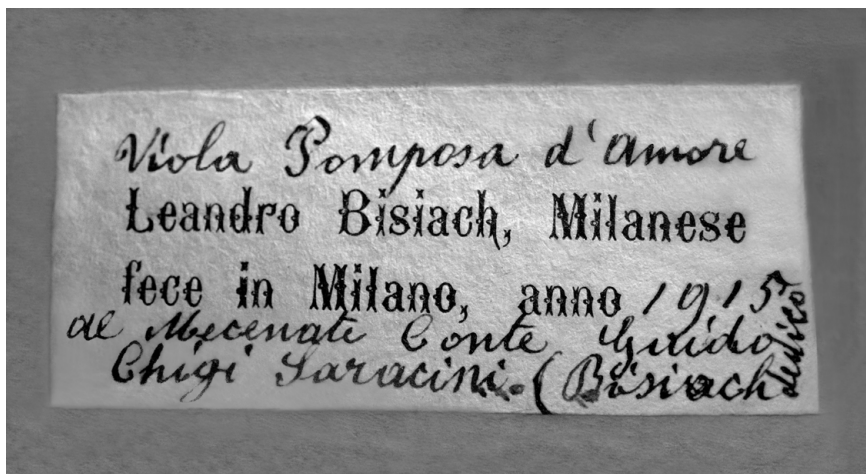 Viola Pomposa d'Amore
Leandro Bisiach, Milanese
fece in Milano, anno 1915
al Mecenate Conte Guido
Chigi Saracini. (Bisiach
dedicò